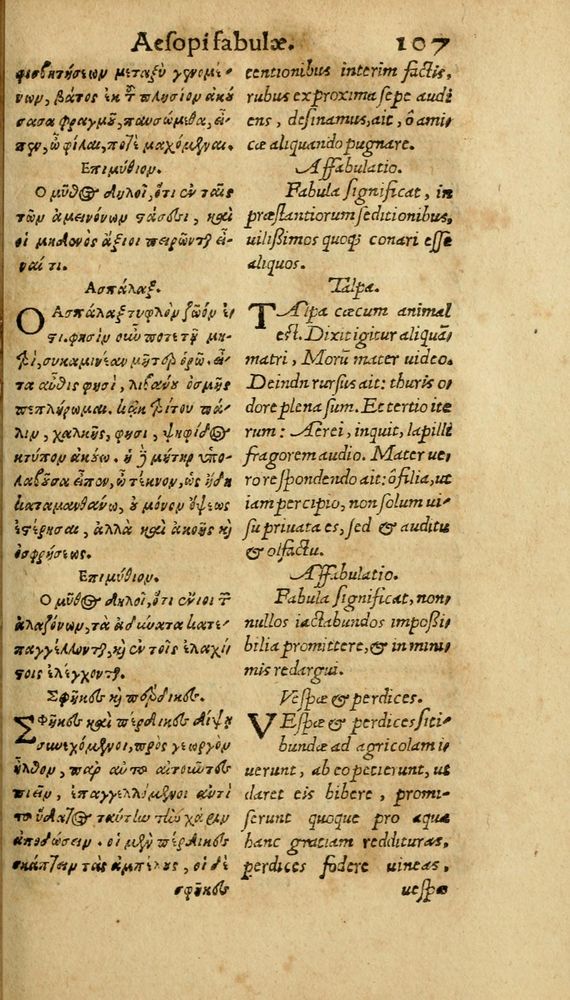 Aesopi fabulæ. 107
φισβητήσεων μεταξὺ γενομέ-
νων, βάτος ἐκ τοῦ πλησίον ἀκού
σασα φραγμοῦ, παυσώμεθα, εἶ-
πεν, ὦ φίλαι, ποτὲ μαχόμεναι.
Επιμύθιον.
Ο μῦθος δηλοῖ, ὅτι ἐν ταῖς
τῶν ἀμεινόνων στάσεσι, καὶ
οἱ μηδενὸς ἄξιοι πειρῶνται εἶ-
ναί τι.
Ασπάλαξ.
Ο Ασπάλαξ τυφλὸν ζῶόν ἐ-
στι. φησὶν οὖν ποτε τῇ μη-
τρὶ, συκαμινέαν μῆτερ ὁρῶ. εἶ-
τα αὖθις φησὶ, λιβάνου ὀσμῆς
πεπλήρωμαι. κἀκ τρίτου πά-
λιν, χαλκῆς, φησι, ψηφίδος
κτύπον ἀκούω. ἡ δὲ μήτηρ ὑπο-
λαβοῦσα εἶπον, ὦ τέκνον, ὡς ἤδη
καταμανθάνω, οὐ μόνον ὄψεως
ἐστέρησαι, ἀλλὰ καὶ ἀκοῆς καὶ
ὀσφρήσεως.
Επιμύθιον.
Ο μῦθος δηλοῖ, ὅτι ἔνιοι τῶν
ἀλαζόνων, τὰ ἀδύνατα κατε-
παγγέλλονται, καὶ ἐν τοῖς ἐλαχί
στοις ἐλέγχονται.
Σφῆκες καὶ πέρδικες.
Σφῆκες καὶ πέρδικες δίψῃ
συνεχόμενοι, πρὸς γεωργὸν
ἦλθον, παρ αὐτοῦ αἰτοῦντες
πιεῖν, ἐπαγγελλόμενοι ἀντὶ
τοῦ ὕδατος ταύτην τὴν χάριν
ἀποδώσειν. οἱ μὲν πέρδικες
σκάπτειν τὰς ἀμπέλους, οἱ δὲ
σφῆκες
tentionibus interim factis,
rubus ex proxima sepe audi
ens, desinamus, ait, ô ami-
cæ aliquando pugnare.
Affabulatio.
Fabula significat, in
præstantiorum seditionibus,
uilissimos quoq; conari esse
aliquos.
Talpa.
TAlpa cæcum animal
est. Dixit igitur aliquã
matri, Morũ mater uideo.
Deindn rursus ait: thuris o-
dore plena sum. Et tertio ite
rum: Aerei, inquit, lapilli
fragorem audio. Mater ue-
ro respondendo ait: ô filia, ut
iam percipio, non solum ui-
su priuata es, sed & auditu
& olfactu.
Affabulatio.
Fabula significat, non-
nullos iactabundos impossi-
bilia promittere, & in mini-
mis redargui.
Vespæ & perdices.
VEspæ & perdices siti-
bundæ ad agricolam i-
uerunt, ab eo petierunt, ut
daret eis bibere, promi-
serunt quoque pro aqua
hanc gratiam reddituras,
perdices fodere uineas,
uespæ